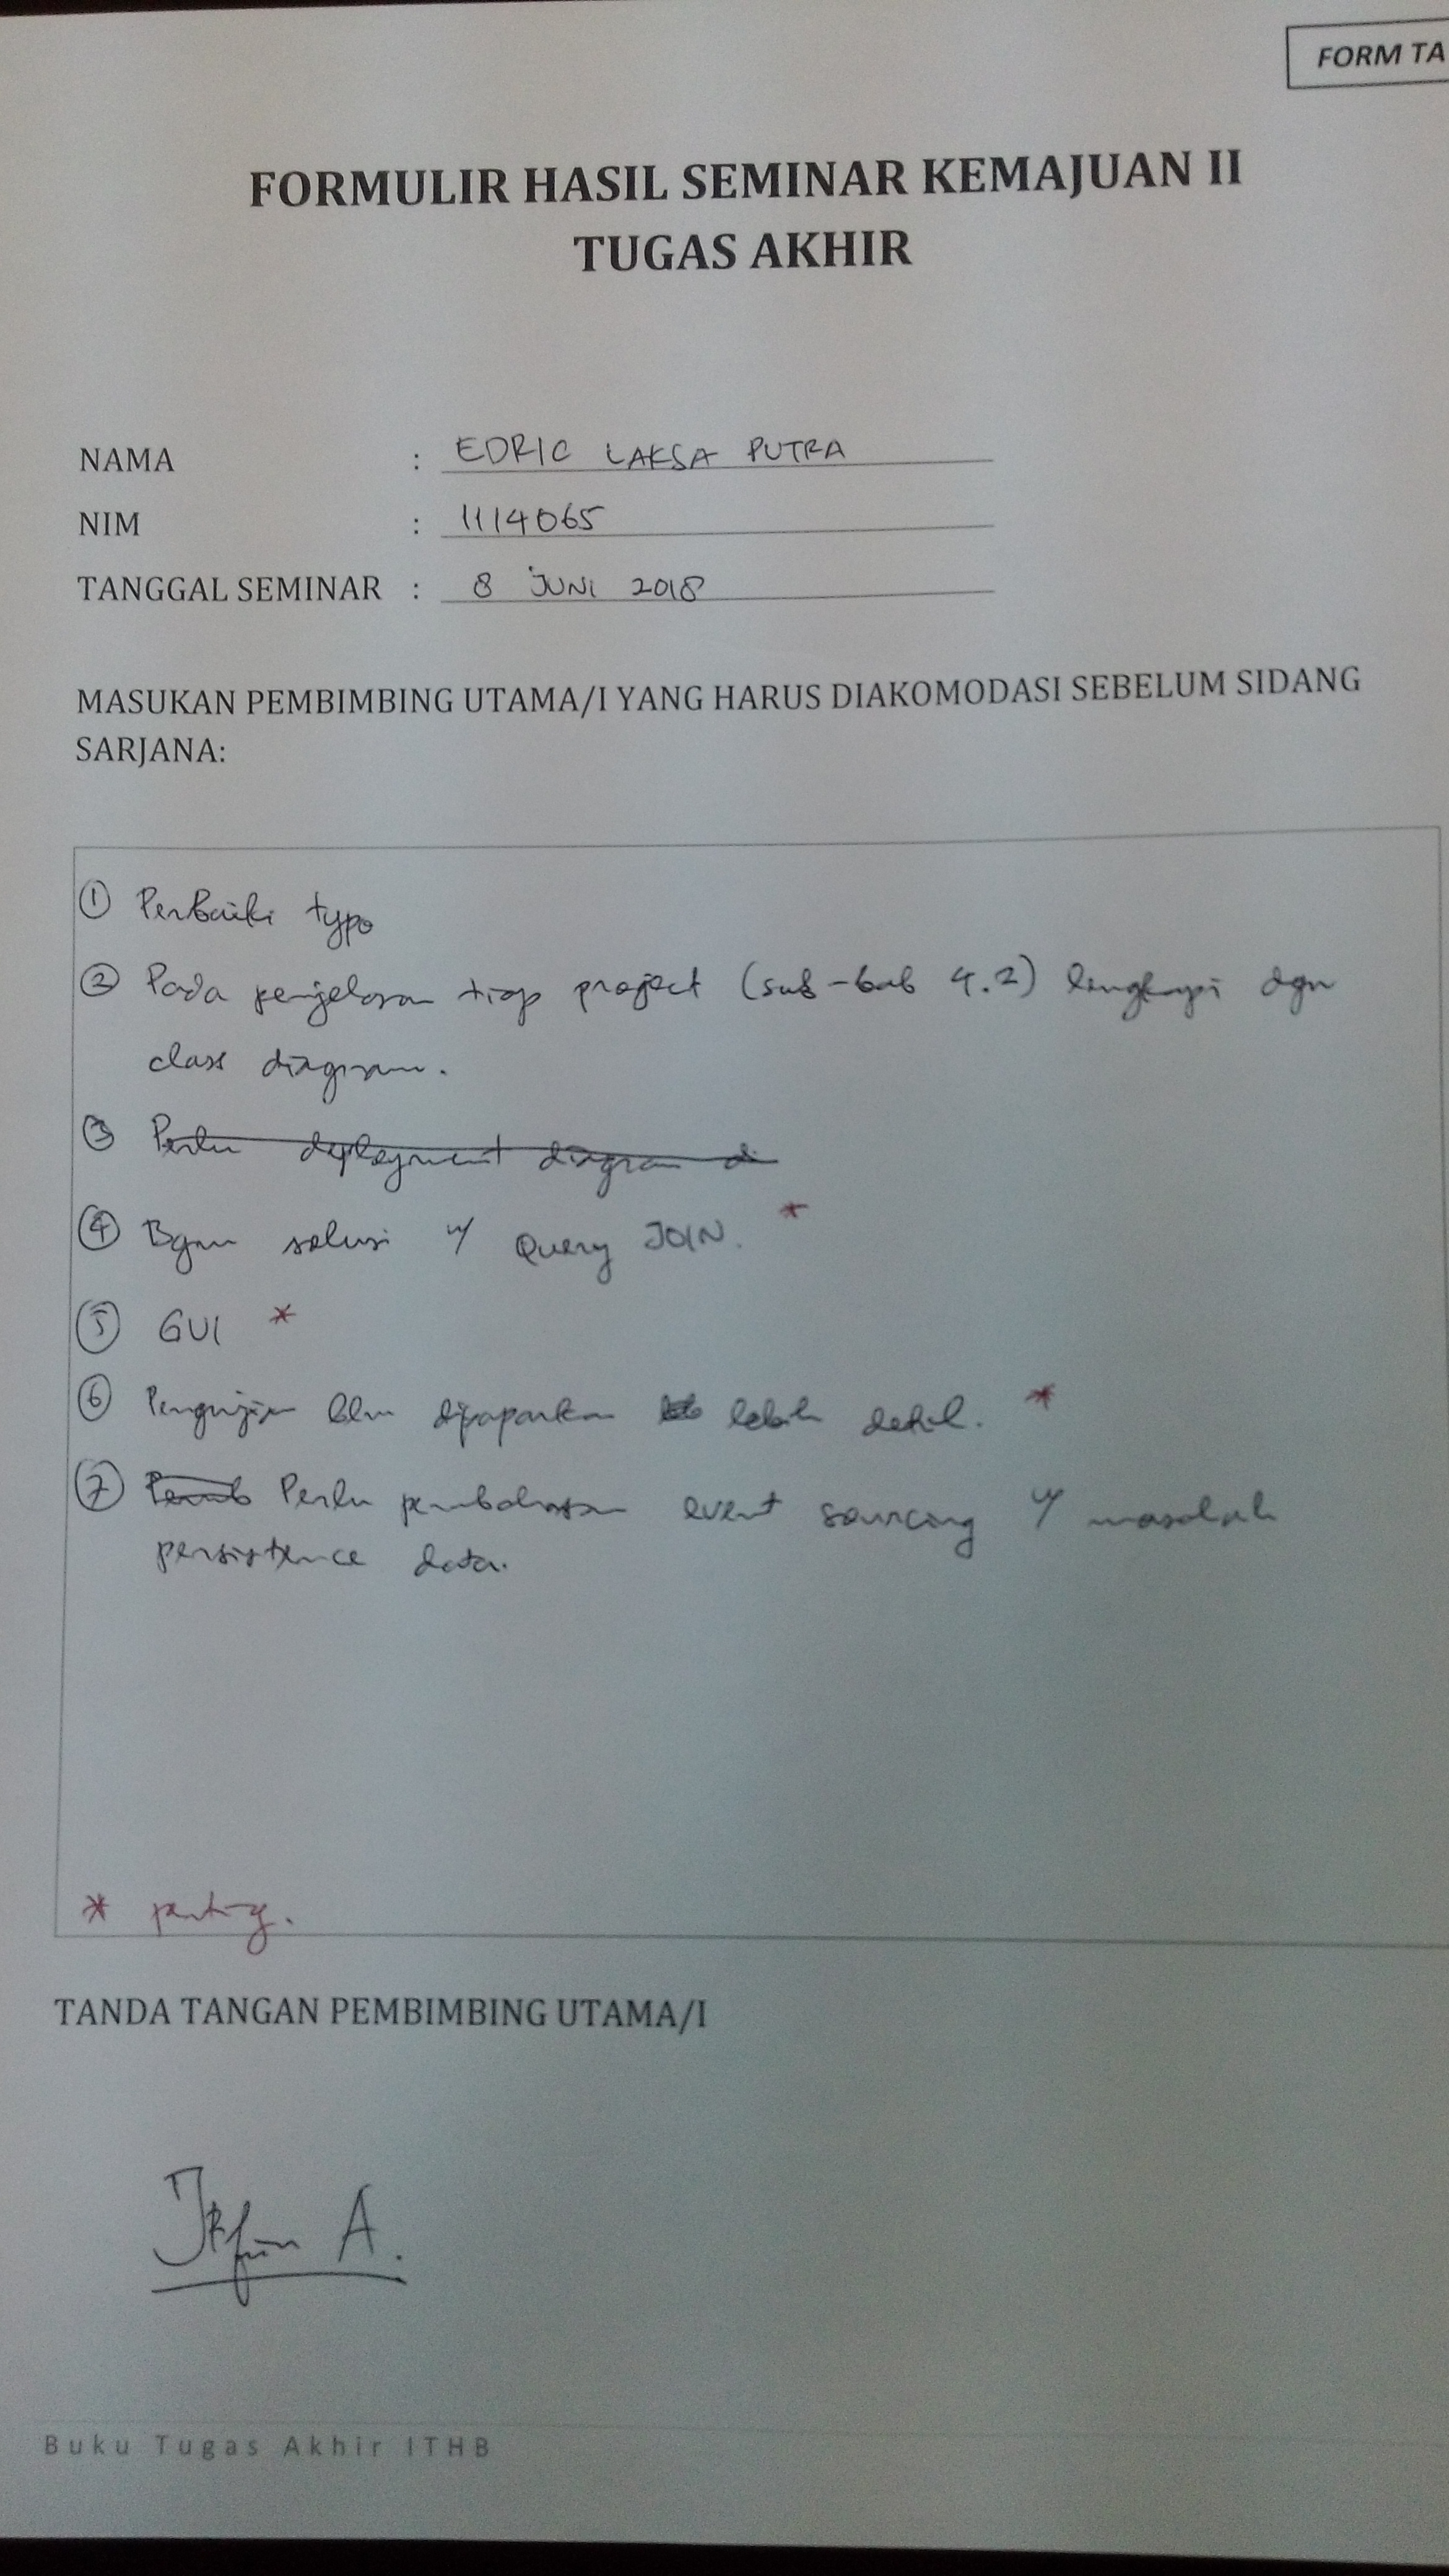 FORM TA
FORMULIR HASIL SEMINAR KEMAJUAN II
TUGAS AKHIR
NAMA : EDRIC LAKSA PUTRA
NIM : 1114065
TANGGAL SEMINAR : 8 JUNI 2018
MASUKAN PEMBIMBING UTAMA/I YANG HARUS DIAKOMODASI SEBELUM SIDANG
SARJANA:
① Perbaiki typo
② Pada penjelasan tiap project (sub-bab 4.2) lengkapi dgn
class diagram.
③ Perlu deployment diagram di
④ Bgmn solusi u/ Query JOIN. *
⑤ GUI *
⑥ Pengujian blm dipaparkan lebih detil. *
⑦ Perlu pembahasan event sourcing u/ masalah
persistence data.
* penting.
TANDA TANGAN PEMBIMBING UTAMA/I
A.
Buku Tugas Akhir ITHB